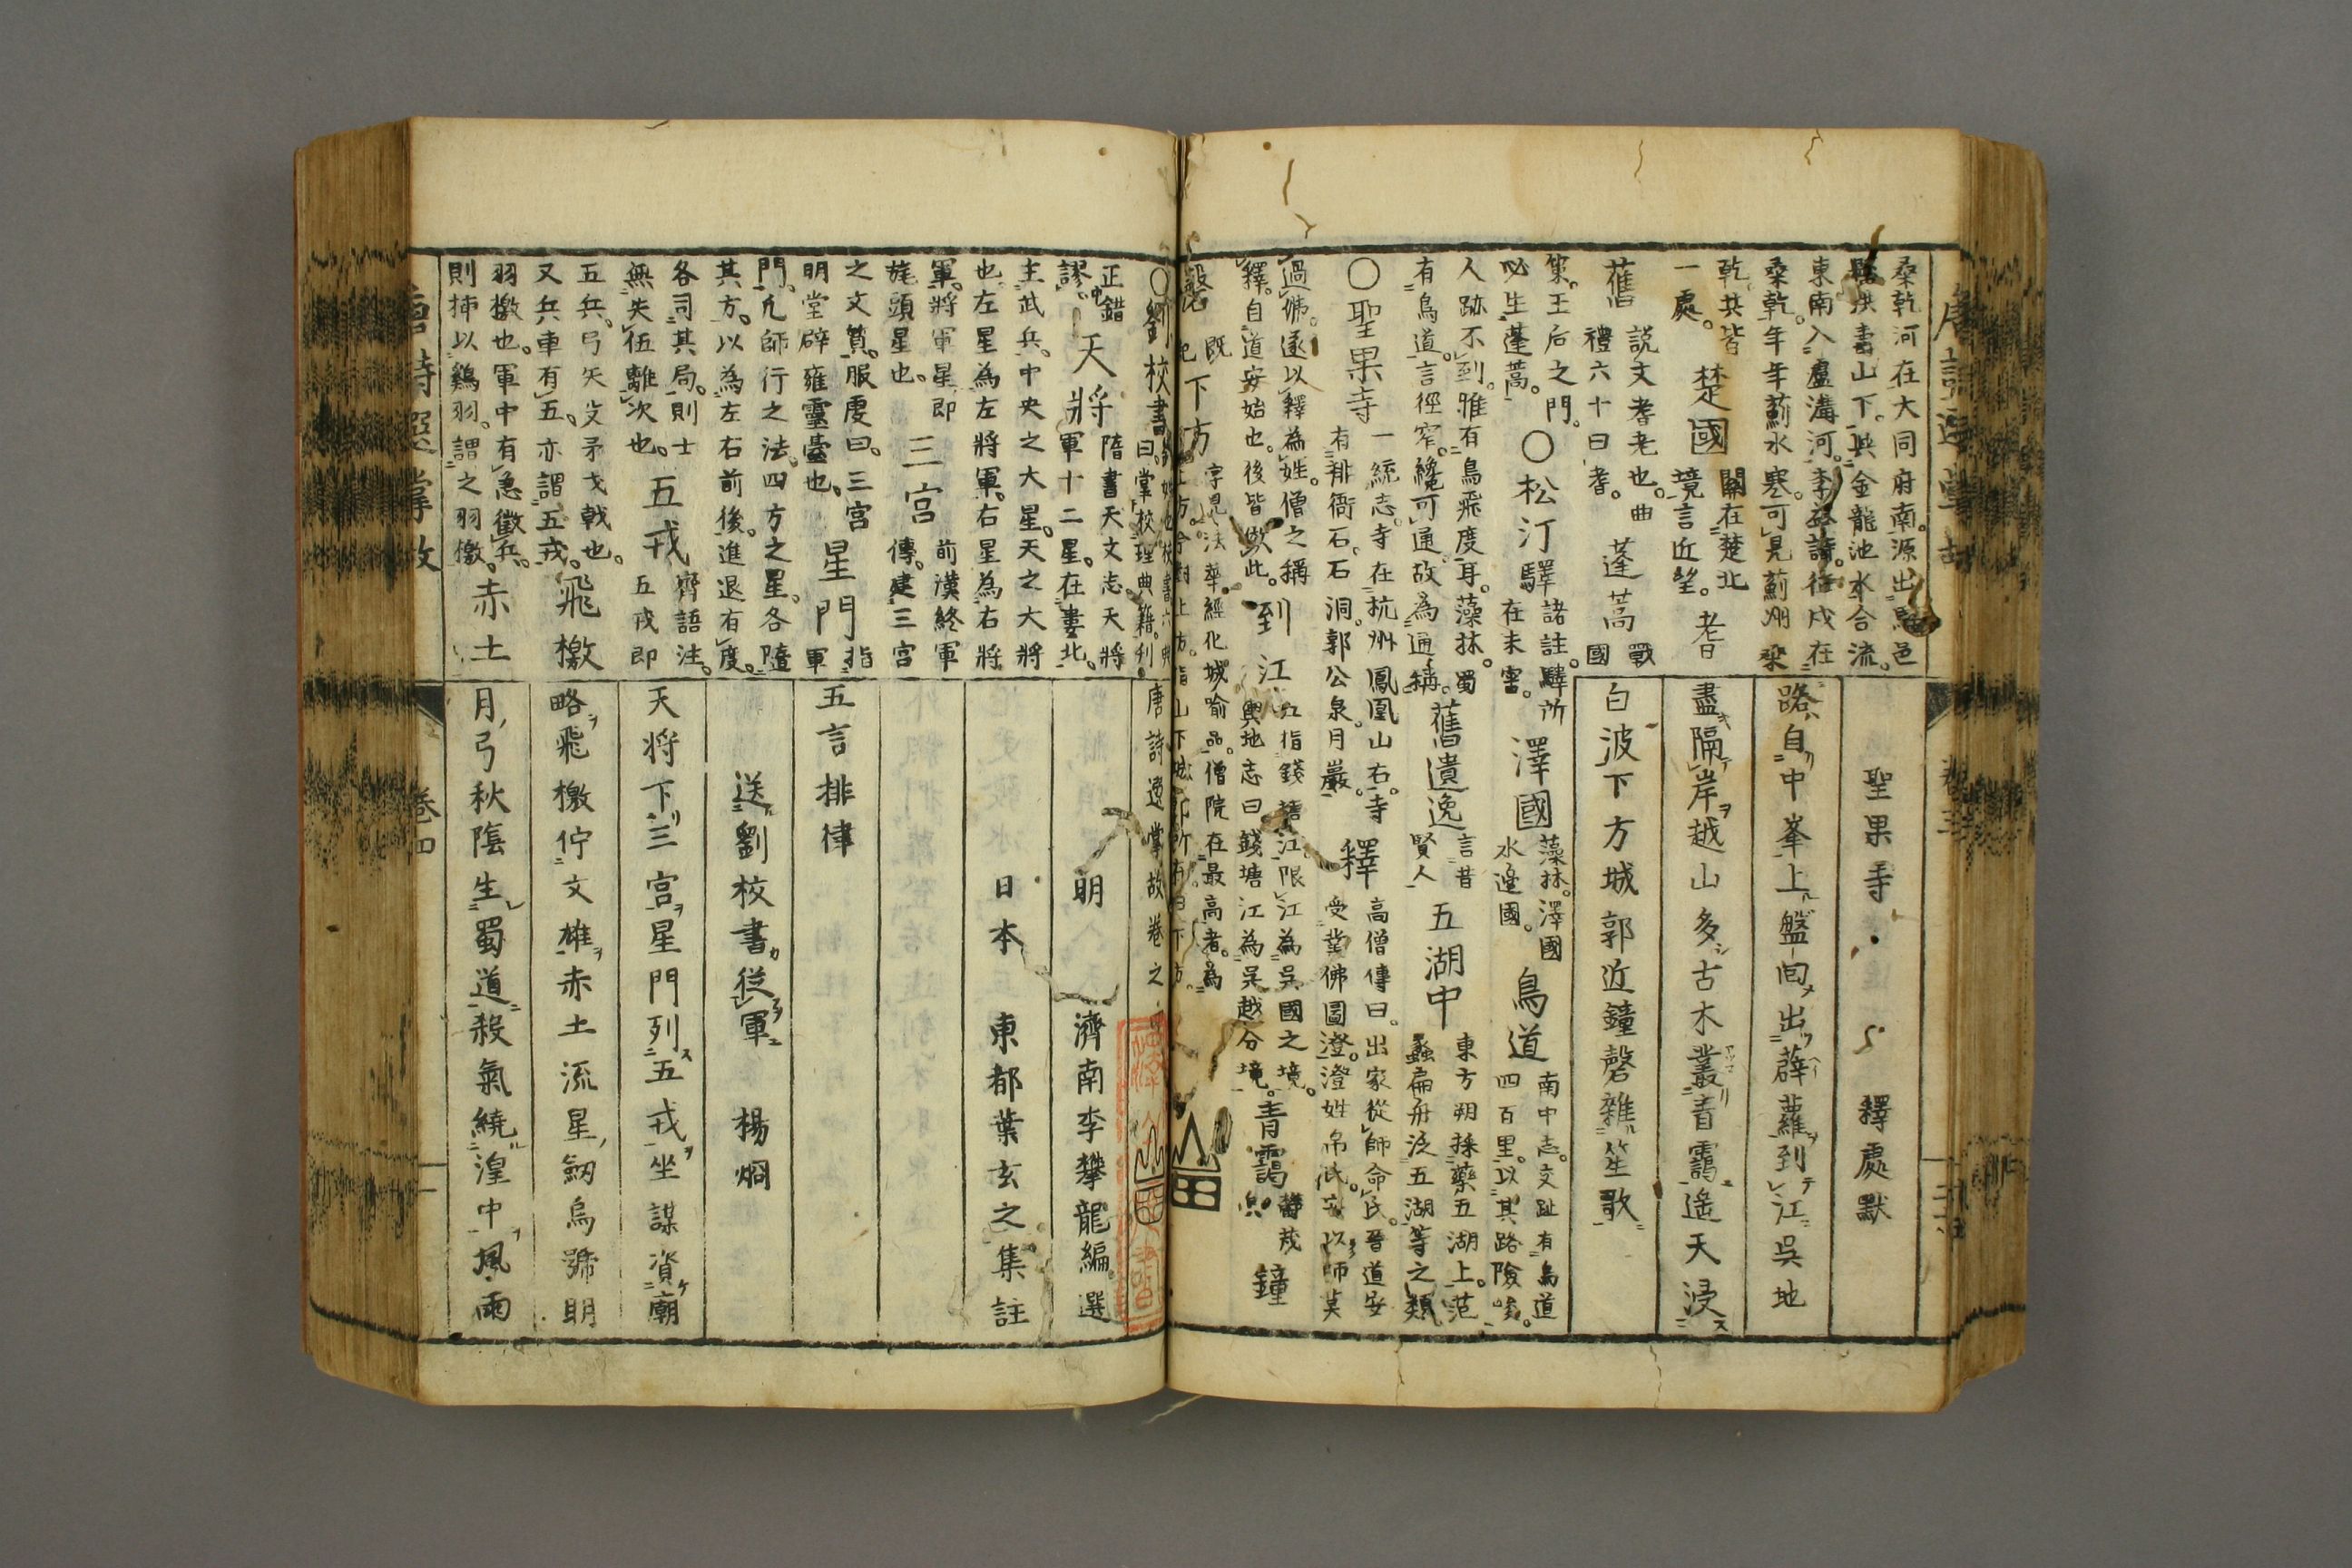 桑乾河在大同府南源出馬邑
縣洪壽山下與金龍池水合流
東南入盧溝河李益詩從戍在
桑乾年年薊水寒可見薊州桑
乾其皆 楚國 關在楚北
一處 境言近望 耆
舊 說文耆老也曲
禮六十曰耆 蓬蒿 戰國
策王后之門 〇松汀驛 諸註驛所
必生蓬蒿 在未審
人跡不到雅有鳥飛度耳藻抹蜀
有鳥道言徑窄纔可通故為通稱
澤國 藻抹澤國
水邊國
鳥道 南中志交趾有鳥道
四百里以其路險峻
舊遺逸 言昔
賢人
五湖中 東方朔採藥五湖上范
蠡扁舟泛五湖等之類
〇聖果寺 一統志寺在杭州鳳凰山右寺
有排衙石石洞郭公泉月巖
釋 高僧傳曰出家從師命氏晉道安
受業佛圖澄澄姓帛氏安以師莫
過佛遂以釋為姓僧之稱
釋自道安始也後皆傚此
到江 江指錢塘江限江為吳國之境
輿地志曰錢塘江為吳越分境
青靄
鐘
磬 下方
字見法華經化城喻品僧院在最高者為
聖果寺 釋處默
路自中峯上盤回出薜蘿到江吳地
盡隔岸越山多古木叢青靄遙天浸
白波下方城郭近鐘磬雜笙歌
唐詩選掌故卷之四
明 濟南李攀龍編選
日本 東都葉玄之集註
五言排律
送劉校書從軍 楊炯
天将下三宮星門列五戎坐謀資廟
略飛檄佇文雄赤土流星劒烏號明
月弓秋陰生蜀道殺氣繞湟中風雨
〇劉校書
曰掌校理典籍刊
正錯
謬 天將 隋書天文志天將
軍十二星在婁北
主武兵中央之大星天之大將
也左星為左將軍右星為右將
軍將軍星即 三宮 前漢終軍
旄頭星也 傳建三宮
之文質服虔曰三宮 星門 指軍
明堂辟雍靈臺也
門凡師行之法四方之星各隨
其方以為左右前後進退有度
各司其局則士 五戎 齊語注
無失伍離次也 五戎即
五兵弓矢殳矛戈戟也
又兵車有五亦謂五戎 飛檄
羽檄也軍中有急徵兵
則挿以鷄羽謂之羽檄 赤土
唐詩選掌故 卷四 一